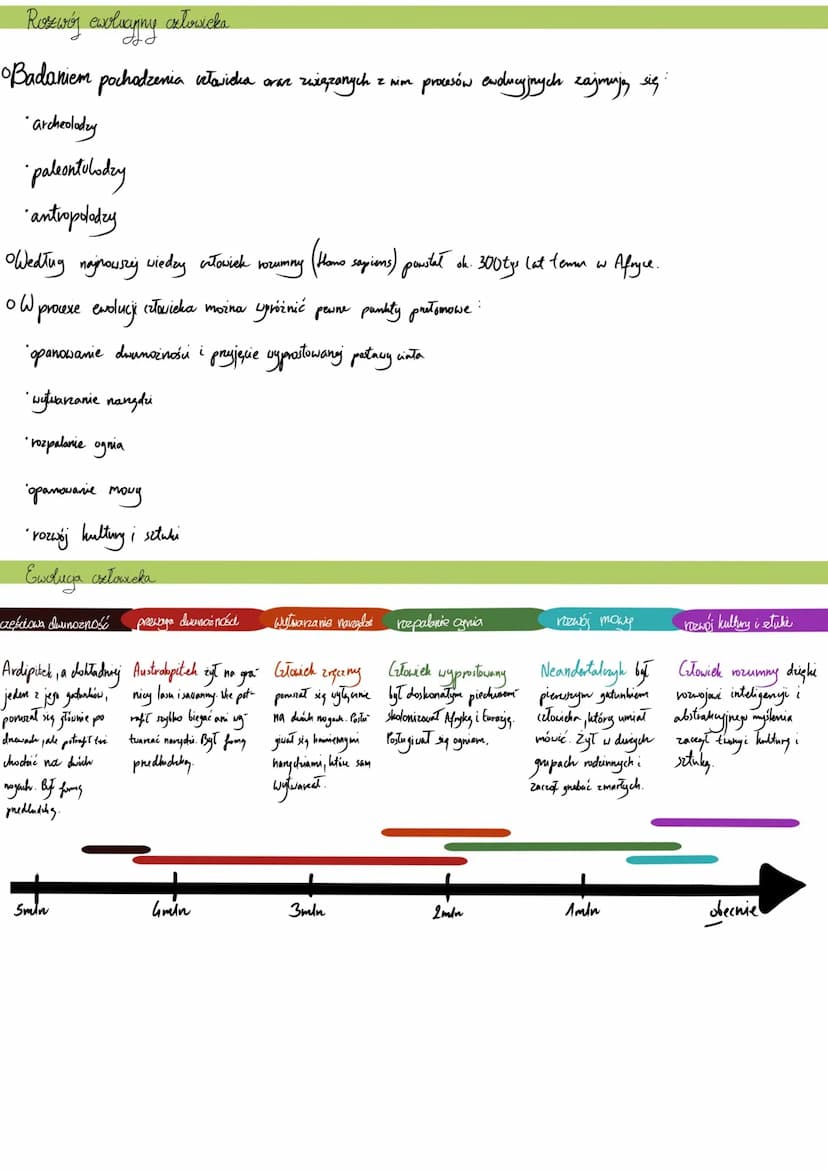 Rozwój ewolucyjny człowieka
Badaniem pochodzenia człowieka oraz związanych z nim procesów ewolucyjnych zajmują się:
archeolodzy
paleontolodzy
antropolodzy
Według najnowszej wiedzy człowiek rozumny (Homo sapiens) powstał ok. 300 tys lat temu w Afryce.
W procesie ewolucji człowieka można wyróżnić pewne punkty przełomowe:
opanowanie dwunożności i przyjęcie wyprostowanej postawy ciała
wytwarzanie narzędzi
rozpalanie ognia
opanowanie mowy
rozwój kultury i sztuki
Ewolucja człowieka
częściowa dwunożność
przewaga dwunożności
wytwarzanie narzędzi
rozpalanie ognia
rozwój mowy
rozwój kultury i sztuki
Ardipitek, a dokładniej
jeden z jego gatunków,
poruszał się głównie po
drzewach, ale potrafił też
chodzić na dwóch
nogach. Był formą
przedludzką.
Australopitek żył na gra-
nicy lasu i sawanny. Nie pot-
rafił szybko biegać ani wy-
twarzać narzędzi. Był formą
przedludzką.
Człowiek zręczny
poruszał się wyłącznie
na dwóch nogach. Posłu-
giwał się kamiennymi
narzędziami, które sam
wytwarzał.
Człowiek wyprostowany
był doskonałym piechurem
skolonizował Afrykę i Eurazję.
Posługiwał się ogniem.
Neandertalczyk był
pierwszym gatunkiem
człowieka, który umiał
mówić. Żył w dużych
grupach rodzinnych i
zaczął grzebać zmarłych.
Człowiek rozumny dzięki
rozwojowi inteligencji i
abstrakcyjnego myślenia
zaczął tworzyć kulturę i
sztukę.
5mln
4mln
3mln
2mln
1mln
obecnie